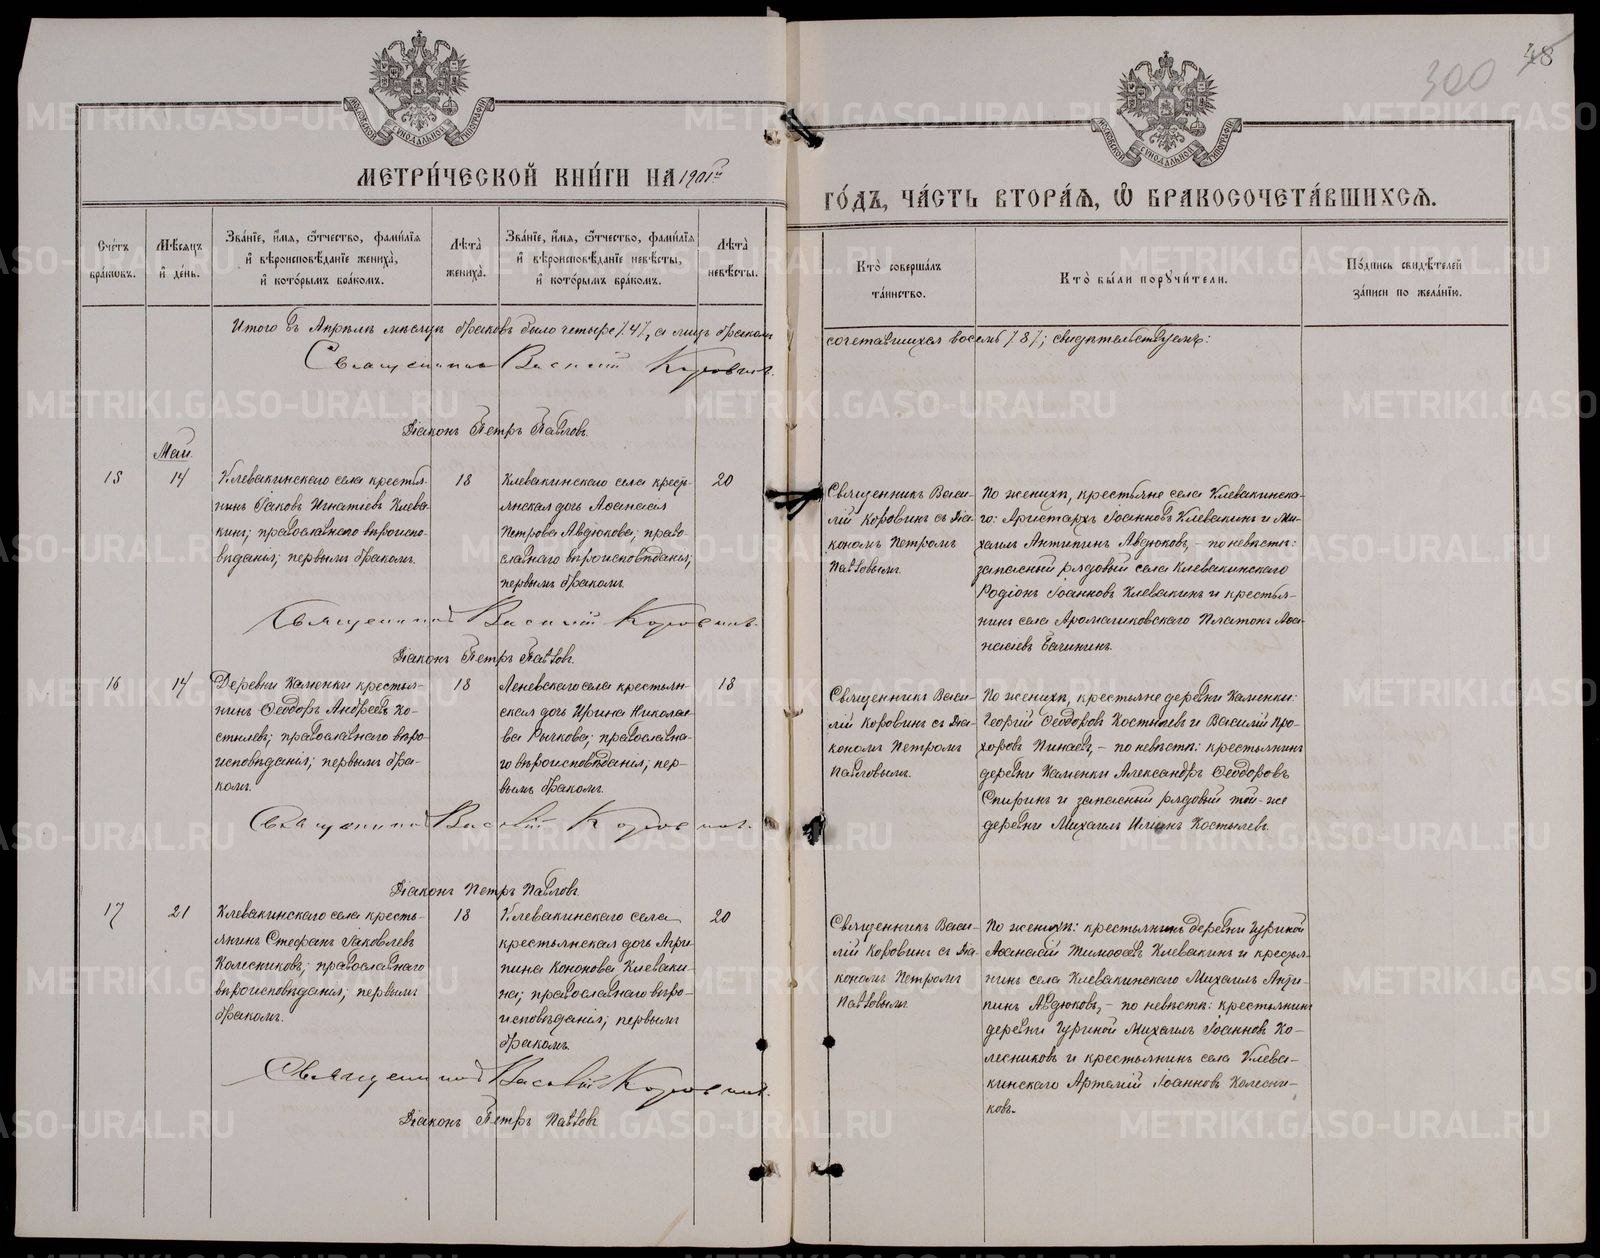 48
300
МЕТРИ́ЧЕСКОЙ КНИ́ГИ НА 1901й
ГО́ДЪ, ЧА́СТЬ ВТОРА́Я, Ѡ҆ БРАКОСОЧЕТА́ВШИХСЯ.
Сче́тъ
бра́ковъ.
Мѣ́сяцъ
и҆ де́нь.
Зва́нїе, и҆́мя, ѻ҆́тчество, фами́лїя
и҆ вѣроисповѣ́данїе жениха̀,
и҆ кото́рымъ бра́комъ.
Лѣ́та
жениха̀.
Зва́нїе, и҆́мя, ѻ҆́тчество, фами́лїя
и҆ вѣроисповѣ́данїе невѣ́сты,
и҆ кото́рымъ бра́комъ.
Лѣ́та
невѣ́сты.
Кто̀ соверша́лъ
та́инство.
Кто̀ бы́ли порꙋчи́тели.
По́дпись свидѣ́телей
за́писи по жела́нїю.
Итого въ Апрѣлѣ мѣсяцѣ браковъ было четыре /4/, а лицъ бракомъ
сочетавшихся восемь /8/; свидѣтельствуемъ:
Священникъ Василій Коровинъ.
Діаконъ Петръ Павловъ.
Май.
15
14
Клевакинскаго села крестья-
нинъ Іаковъ Игнатіевъ Клева-
кинъ; православнаго вѣроиспо-
вѣданія; первымъ бракомъ.
18
Клевакинскаго села кресть-
янская дочь Аѳанасія
Петрова Авдюкова; право-
славнаго вѣроисповѣданія;
первымъ бракомъ.
20
Священникъ Васи-
лій Коровинъ съ Діа-
кономъ Петромъ
Павловымъ.
По женихѣ, крестьяне села Клевакинска-
го: Аристархъ Іоанновъ Клевакинъ и Ми-
хаилъ Антипинъ Авдюковъ, – по невѣстѣ:
запасный рядовый села Клевакинскаго
Родіонъ Іоанновъ Клевакинъ и крестья-
нинъ села Арамашковскаго Платонъ Аѳа-
насіевъ Бачининъ.
Священникъ Василій Коровинъ.
Діаконъ Петръ Павловъ.
16
14
Деревни Каменки крестья-
нинъ Ѳеодоръ Андреевъ Ко-
стылевъ; православнаго вѣро-
исповѣданія; первымъ бра-
комъ.
18
Леневскаго села крестьян-
ская дочь Ирина Николае-
ва Рычкова; православна-
го вѣроисповѣданія; пер-
вымъ бракомъ.
18
Священникъ Васи-
лій Коровинъ съ Діа-
кономъ Петромъ
Павловымъ.
По женихѣ, крестьяне деревни Каменки:
Георгій Ѳеодоровъ Костылевъ и Василій Про-
хоровъ Пинаевъ, – по невѣстѣ: крестьянинъ
деревни Каменки Александръ Ѳеодоровъ
Спиринъ и запасный рядовый той-же
деревни Михаилъ Ильинъ Костылевъ.
Священникъ Василій Коровинъ.
Діаконъ Петръ Павловъ.
17
21
Клевакинскаго села кресть-
янинъ Стефанъ Іаковлевъ
Колесниковъ; православнаго
вѣроисповѣданія; первымъ
бракомъ.
18
Клевакинскаго села
крестьянская дочь Агри-
пина Кононова Клеваки-
на; православнаго вѣро-
исповѣданія; первымъ
бракомъ.
20
Священникъ Васи-
лій Коровинъ съ Діа-
кономъ Петромъ
Павловымъ.
По женихѣ: крестьянинъ деревни Гуриной
Аѳанасій Тимоѳеевъ Клевакинъ и крестья-
нинъ села Клевакинскаго Михаилъ Анти-
пинъ Авдюковъ, – по невѣстѣ: крестьянинъ
деревни Гуриной Михаилъ Іоанновъ Ко-
лесниковъ и крестьянинъ села Клева-
кинскаго Артемій Іоанновъ Колесни-
ковъ.
Священникъ Василій Коровинъ.
Діаконъ Петръ Павловъ